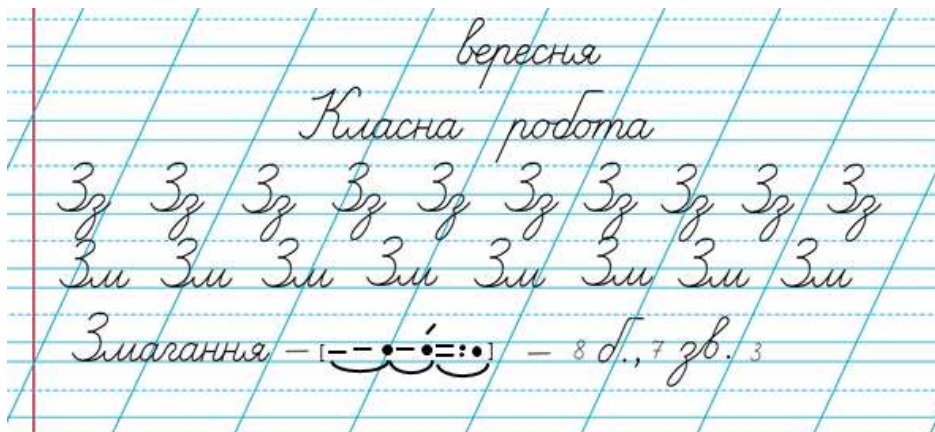 вересня
Класна робота
Зз Зз Зз Зз Зз Зз Зз Зз Зз Зз
Зм Зм Зм Зм Зм Зм Зм Зм
Змагання – [– – • – •́ = : •] – 8 б., 7 зв. 3